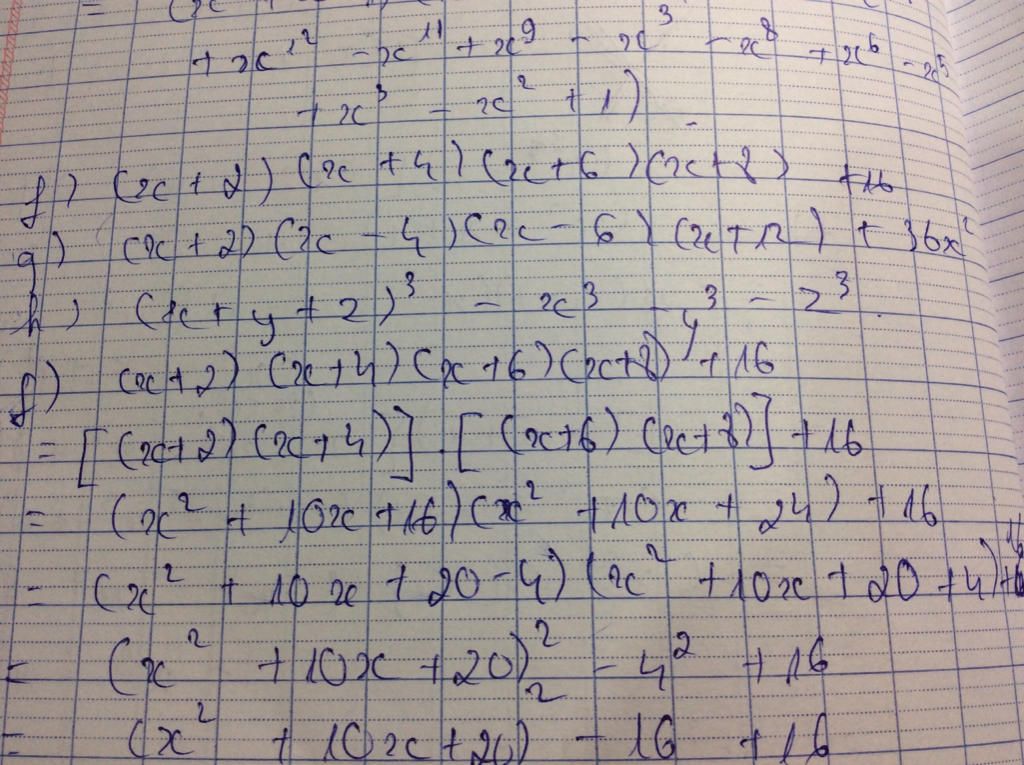 = (x
+ x¹² - x¹¹ + x⁹ - x³ - x⁸ + x⁶ - x⁵
+ x³ - x² + 1)
f) (x+2)(x+4)(x+6)(x+8) +16
g) (x+2)(x-4)(x-6)(x+12) + 36x²
h) (x+y+z)³ - x³ - y³ - z³
f) (x+2)(x+4)(x+6)(x+8)+16
= [(x+2)(x+4)].[(x+6)(x+8)]+16
= (x² + 10x+16)(x² +10x+24)+16
= (x² + 10x+20-4)(x² +10x+20+4)+16
= (x² +10x+20)² - 4² +16
= (x² +10x+20)² - 16 +16